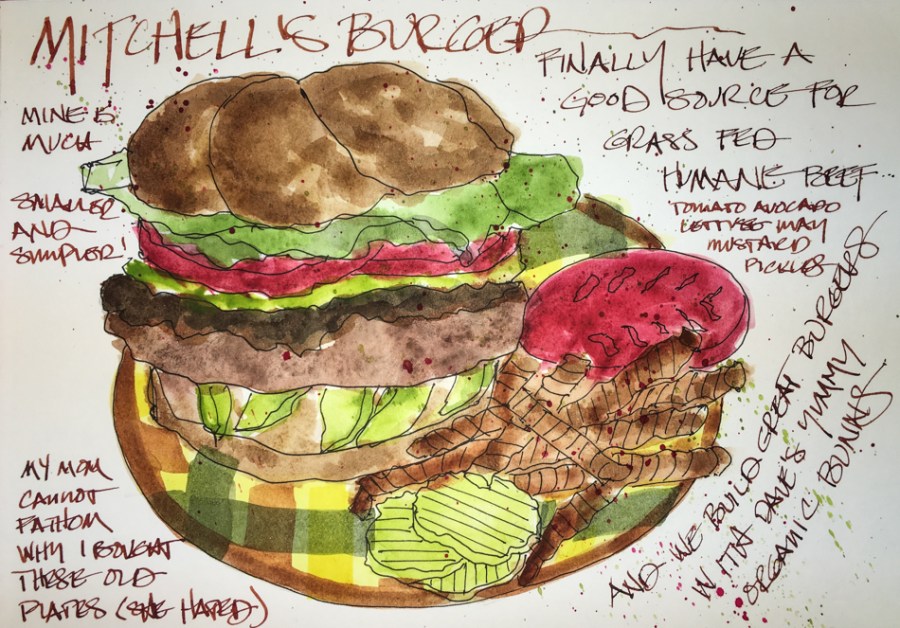 MITCHELL'S BURGER
FINALLY HAVE A
GOOD SOURCE FOR
GRASS FED
HUMANE BEEF
TOMATO AVOCADO
LETTUSE MAY
MUSTARD
PICKLES
MINE IS
MUCH
SMALLER
AND
SIMPLER!
AND WE BUILD GREAT BURGERS
WITH DAVE'S YUMMY
ORGANIC BUNNS
MY MOM
CANNOT
FATHOM
WHY I BOUGHT
THESE OLD
PLATES (SHE HATED)